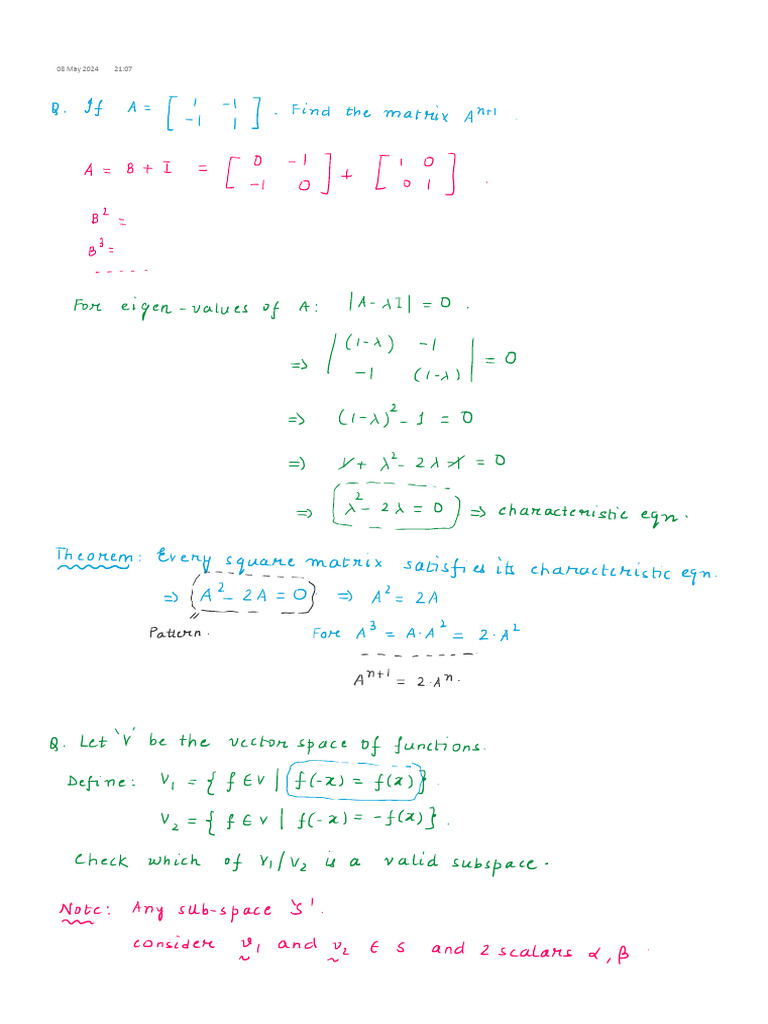 08 May 2024 21:07
Q. If A = [ 1 -1 ; -1 1 ] . Find the matrix Aⁿ⁺¹ .
A = B + I = [ 0 -1 ; -1 0 ] + [ 1 0 ; 0 1 ] .
B² =
B³ =
-----
For eigen-values of A: |A-λI| = 0 .
=> | (1-λ) -1 ; -1 (1-λ) | = 0
=> (1-λ)² - 1 = 0
=> 1 + λ² - 2λ - 1 = 0
=> λ² - 2λ = 0 => characteristic eqn.
Theorem: Every square matrix satisfies its characteristic eqn.
=> A² - 2A = 0 => A² = 2A
Pattern. For A³ = A·A² = 2·A²
Aⁿ⁺¹ = 2·Aⁿ.
Q. Let 'V' be the vector space of functions.
Define: V₁ = { f ∈ V | f(-x) = f(x) } .
V₂ = { f ∈ V | f(-x) = -f(x) } .
Check which of V₁/V₂ is a valid subspace.
Note: Any sub-space 'S'.
consider v₁ and v₂ ∈ S and 2 scalars α, β .